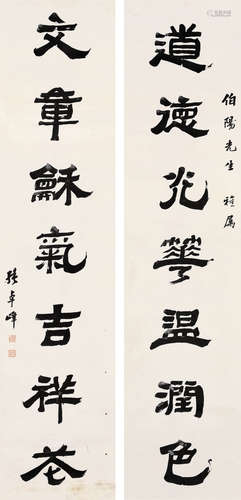 伯陽先生 雅属
道德光華温潤色
文章龢氣吉祥花
張卓峰